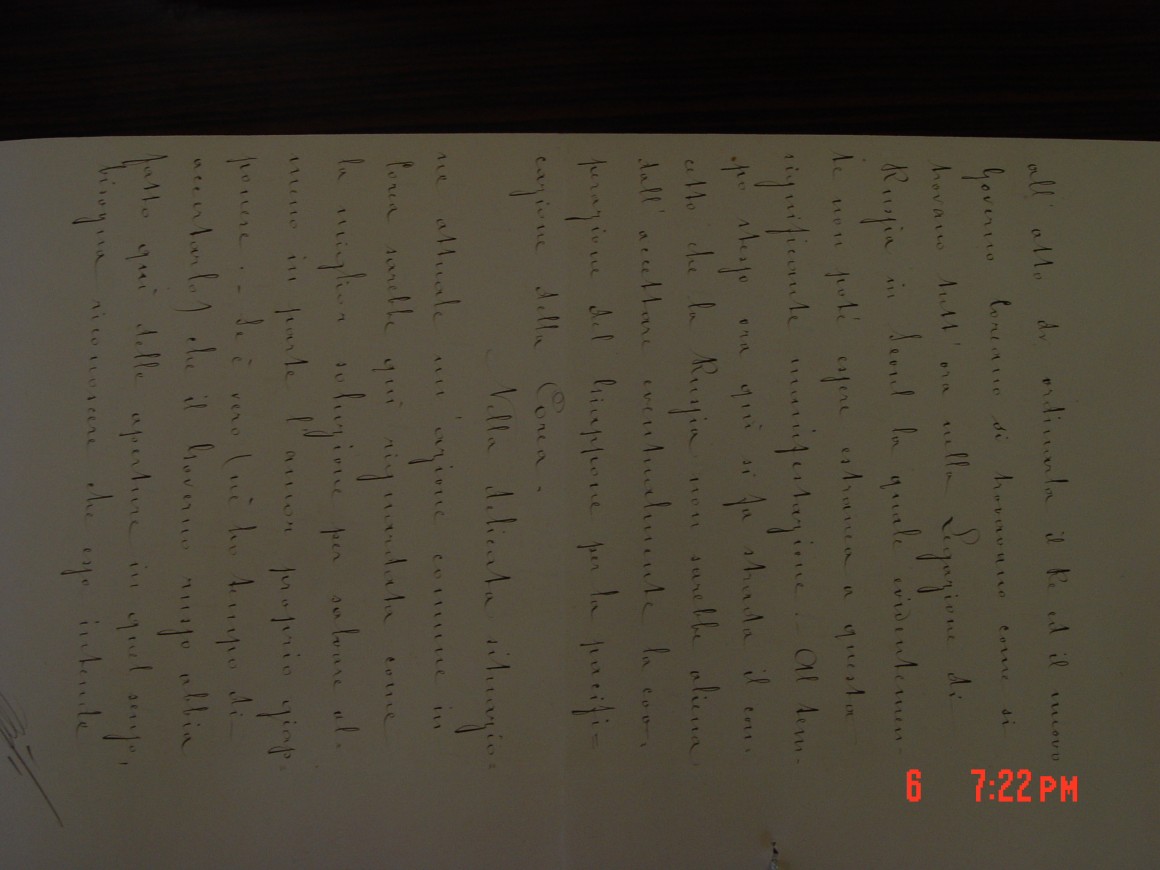 all'atto di ordinarla il Re ed il nuovo
Governo Coreano si trovavano come si
trovano tutt'ora nella Legazione di
Russia in Seoul la quale evidentemen-
te non poté essere estranea a questa
significante manifestazione. - Al tem-
po stesso ora quì si fa strada il con-
cetto che la Russia non sarebbe aliena
dall'accettare eventualmente la coo-
perazione del Giappone per la pacifi=
cazione della Corea.
Nella delicata situazio=
ne attuale un'azione comune in
Corea sarebbe quì riguardata come
la miglior soluzione per salvare al-
meno in parte l'amor proprio giap-
ponese. - Se è vero (nè ho tempo di
accertarlo) che il Governo russo abbia
fatto quì delle aperture in quel senso,
bisogna riconoscere che esso intende
6 7:22 PM